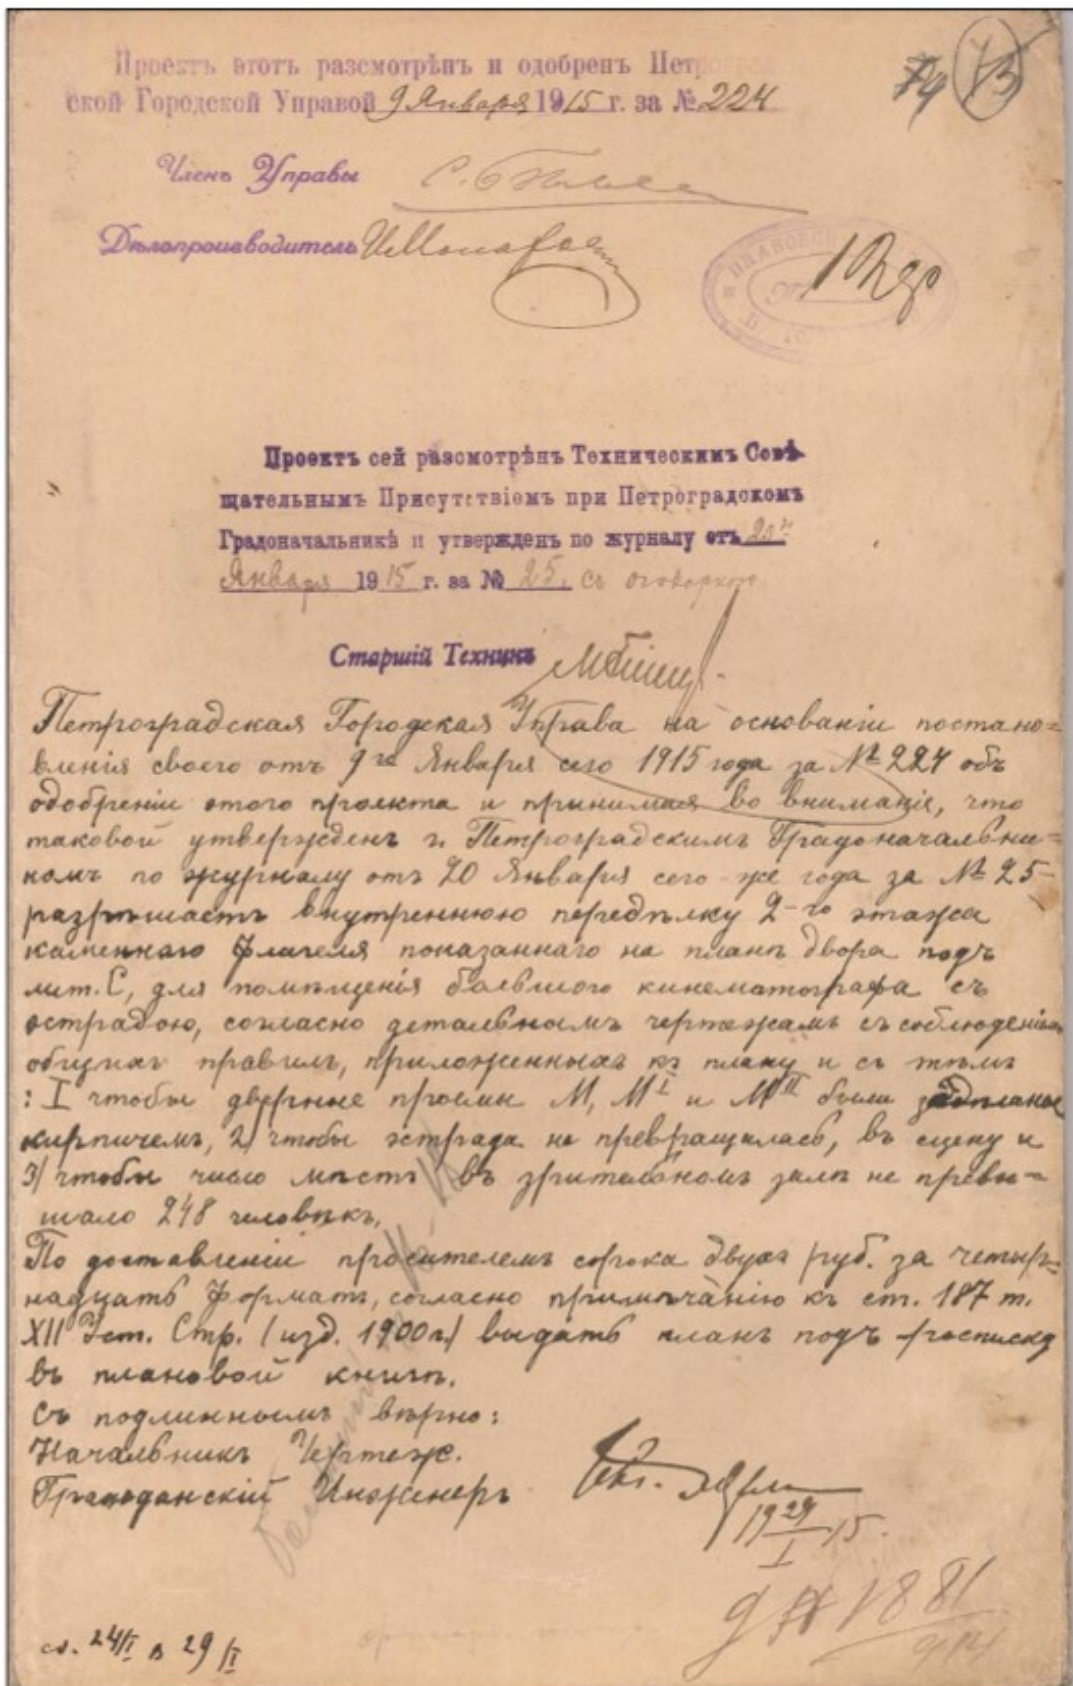 Проектъ этотъ разсмотрѣнъ и одобренъ Петроград
ской Городской Управой 9 Января 1915 г. за № 224
74 73
Членъ Управы
Дѣлопроизводитель
ПЛАНОВ
Проектъ сей разсмотрѣнъ Техническимъ Совѣ-
щательнымъ Присутствіемъ при Петроградскомъ
Градоначальникѣ и утвержденъ по журналу отъ 20го
Января 1915 г. за № 25. съ оговоркою
Старшій Техникъ
Петроградская Городская Управа на основаніи постано=
вленія своего отъ 9го Января сего 1915 года за № 224 объ
одобреніи этого проекта и принимая во вниманіе, что
таковой утвержденъ г. Петроградскимъ Градоначальни=
комъ по журналу отъ 20 Января сего-же года за № 25-
разрѣшаетъ внутреннюю передѣлку 2-го этажа
каменнаго флигеля показаннаго на планѣ двора подъ
лит. С, для помѣщенія бывшого кинематографа съ
эстрадою, согласно детальнымъ чертежамъ съ соблюденіемъ
общихъ правилъ, приложенныхъ къ плану и съ тѣмъ
: I чтобы дверные проемы М, МI и МII были задѣланы
кирпичемъ, 2/ чтобы эстрада не превращалась, въ сцену и
3/ чтобы число мѣстъ въ зрительномъ залѣ не превы=
шало 248 человѣкъ.
По доставленіи просителемъ сорока двухъ руб. за четыр=
надцать форматъ, согласно примѣчанію къ ст. 187 т.
XII Уст. Стр. (изд. 1900 г.) выдать планъ подъ росписку
въ плановой книгѣ.
Съ подлиннымъ вѣрно:
Начальникъ Чертеж.
Гражданскій Инженеръ
19 24/I 15.
1881
сл. 24/I в 29/I